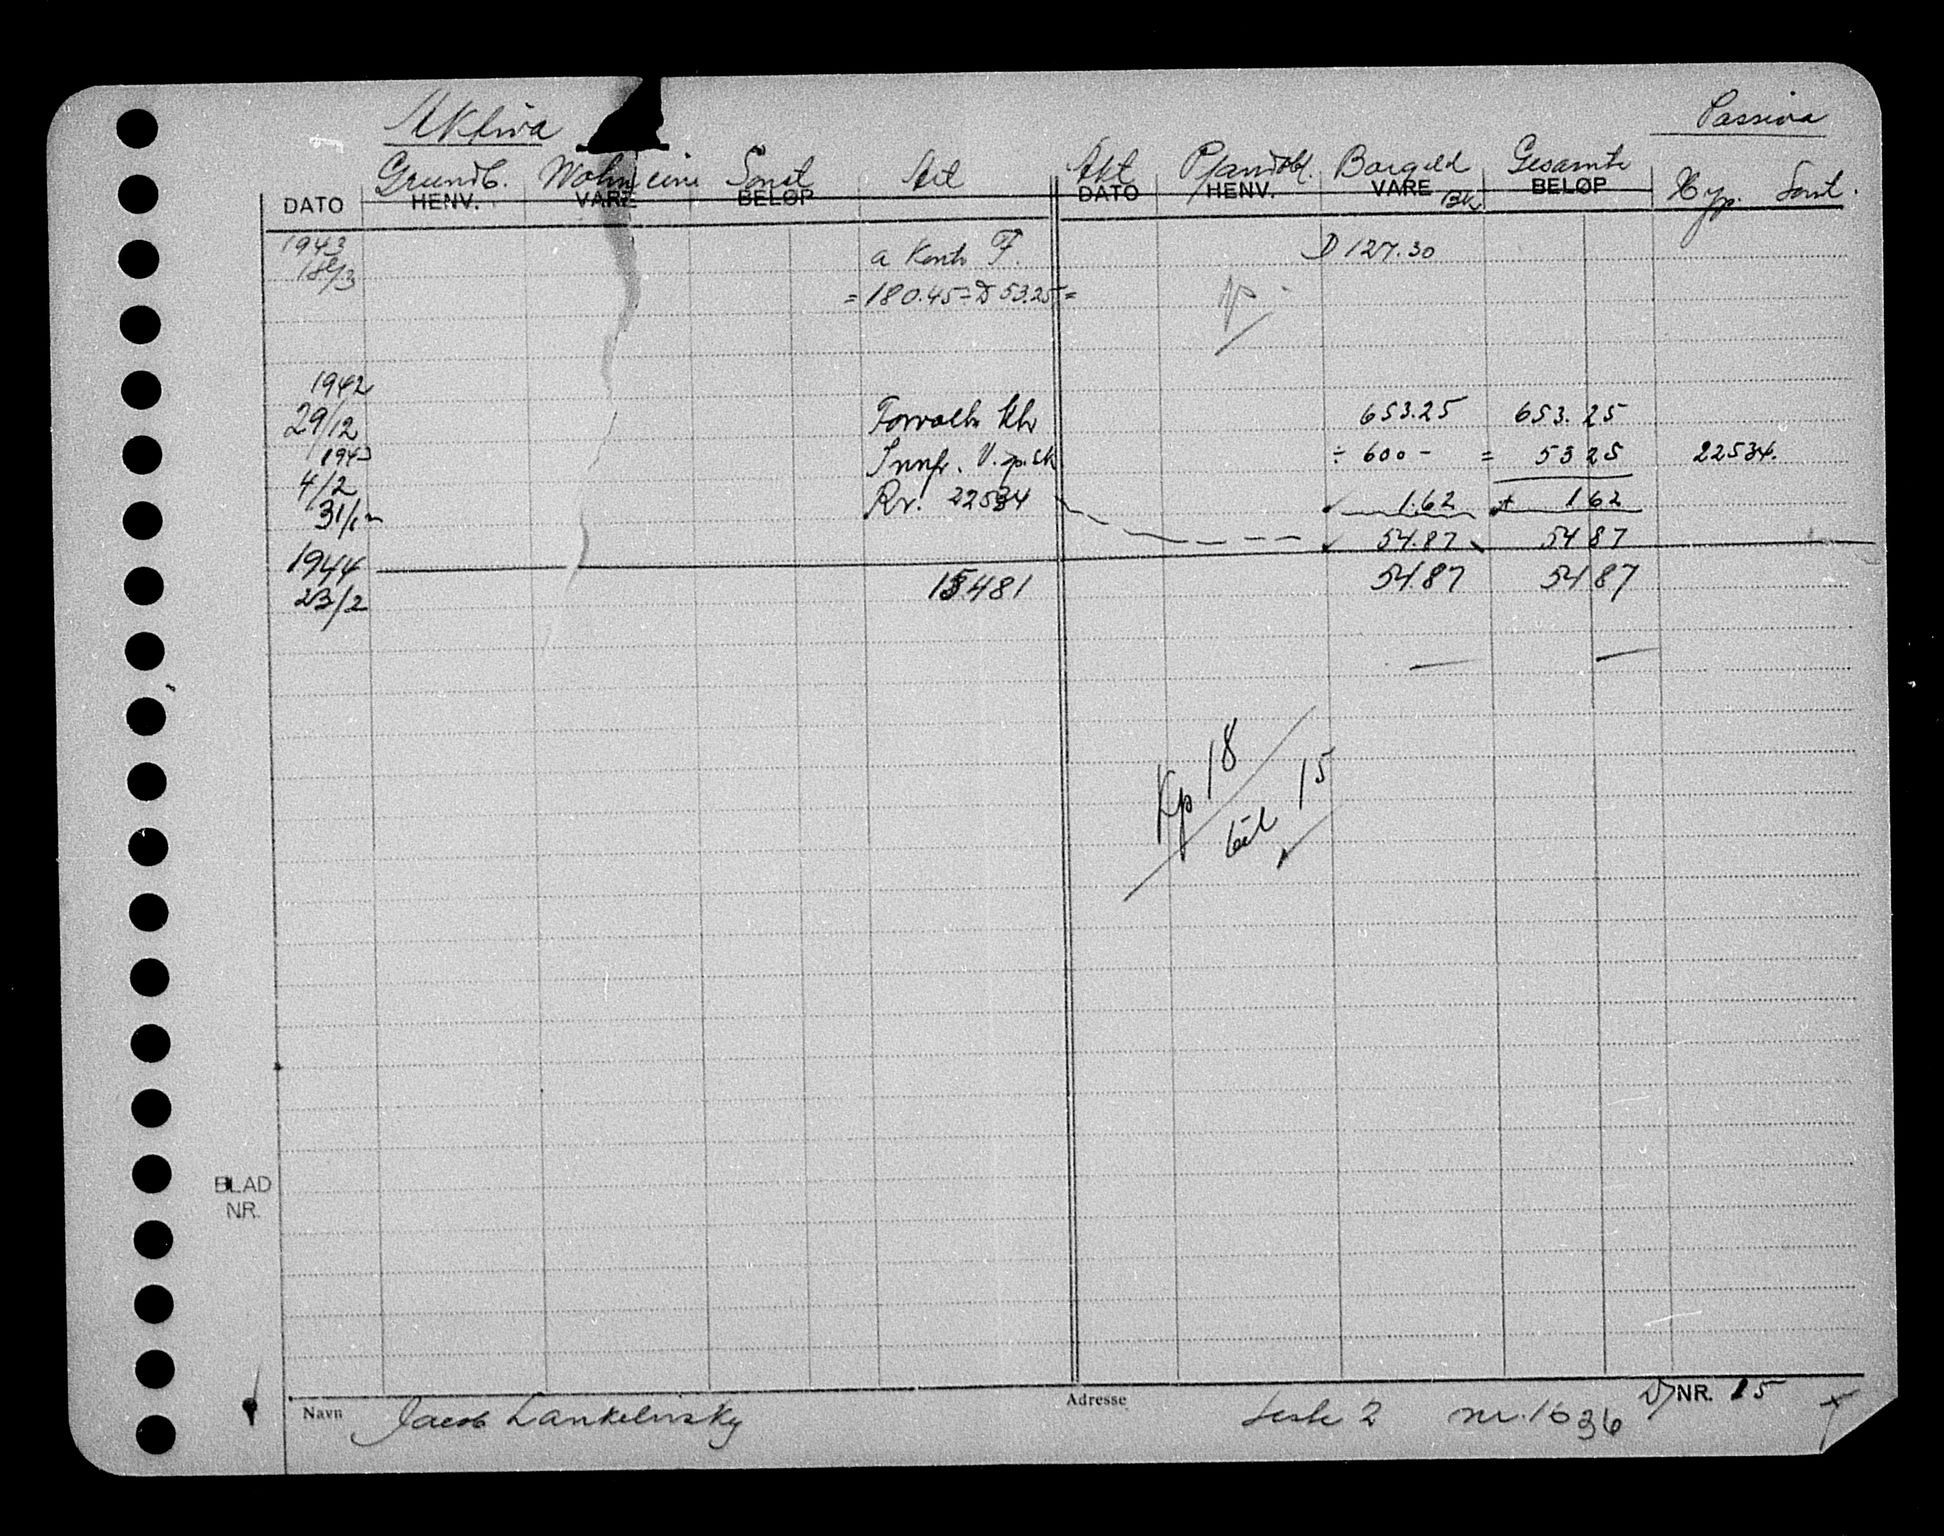 Aktiva Passiva
Grundb. Wohn eine Sonst Art Akt Pfandobl. Bargeld Gesamte Hyp. Sonst.
DATO HENV. VARE BELØP DATO HENV. VARE Bk BELØP
1943 a Konto F. D 127.30
18/3 = 180.45 = D 53.25 =
1942
29/12 Forvaltn Kto 653.25 653.25
1943 Innfr. V. ÷ 600 - = 53 25 22534.
4/2
31/12 Rv. 22534 1.62 + 1 62
54.87 54 87
1944
23/2 15481 54.87 54 87
Kp 18
bil 15
BLAD
NR.
Navn Jacob Lankelinsky Adresse Liste 2 nr. 1636 D/NR. 15